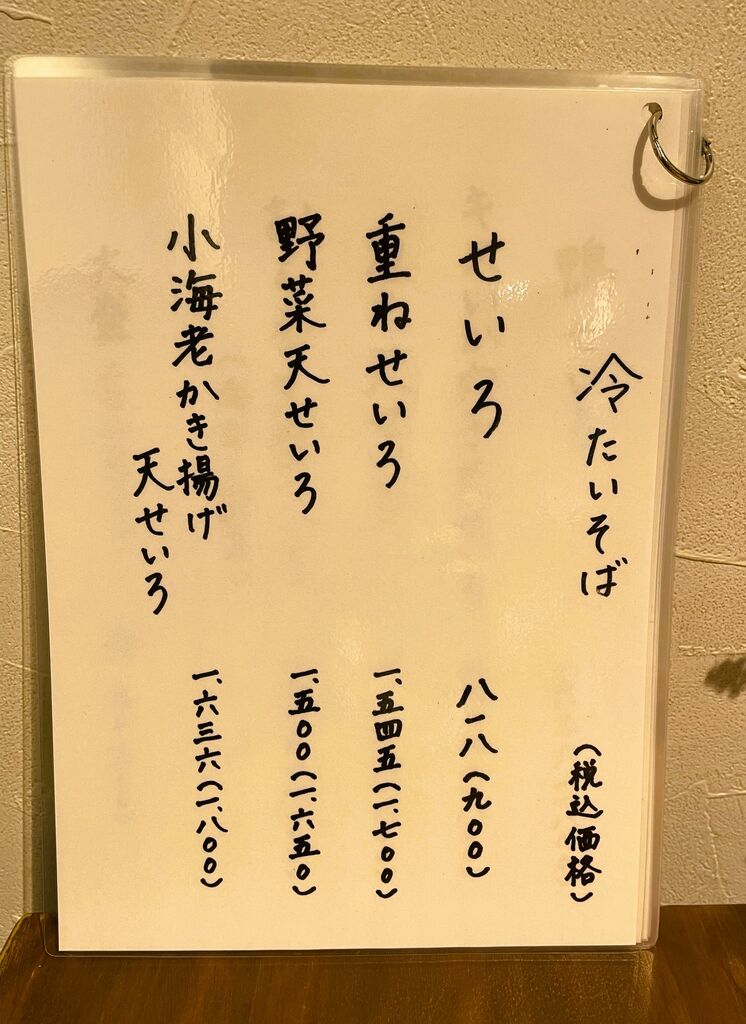 冷たいそば (税込価格)
せいろ 八一八(九〇〇)
重ねせいろ 一、五四五(一、七〇〇)
野菜天せいろ 一、五〇〇(一、六五〇)
小海老かき揚げ
天せいろ 一、六三六(一、八〇〇)